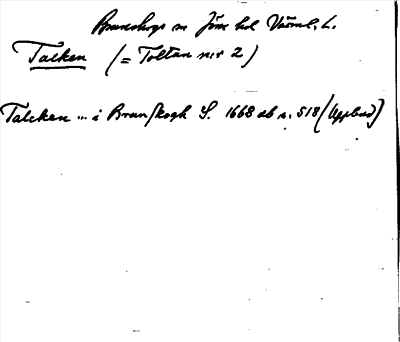 Brunskogs sn Jösse hd Värml. L.
Talken (= Toltan nr 2)
Talcken ... i Brunskogh S. 1668 ab n. 518 (Uppbud)